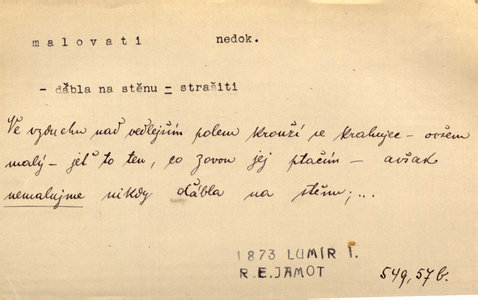 malovati nedok.
- ďábla na stěnu = strašiti
Ve vzduchu nad vedlejším polem krouží se krahujec - ovšem
malý - jeť to ten, co zovou jej ptačím - avšak
nemalujme nikdy ďábla na stěnu;...
1873 LUMÍR I.
R.E.JAMOT
549, 57 b.